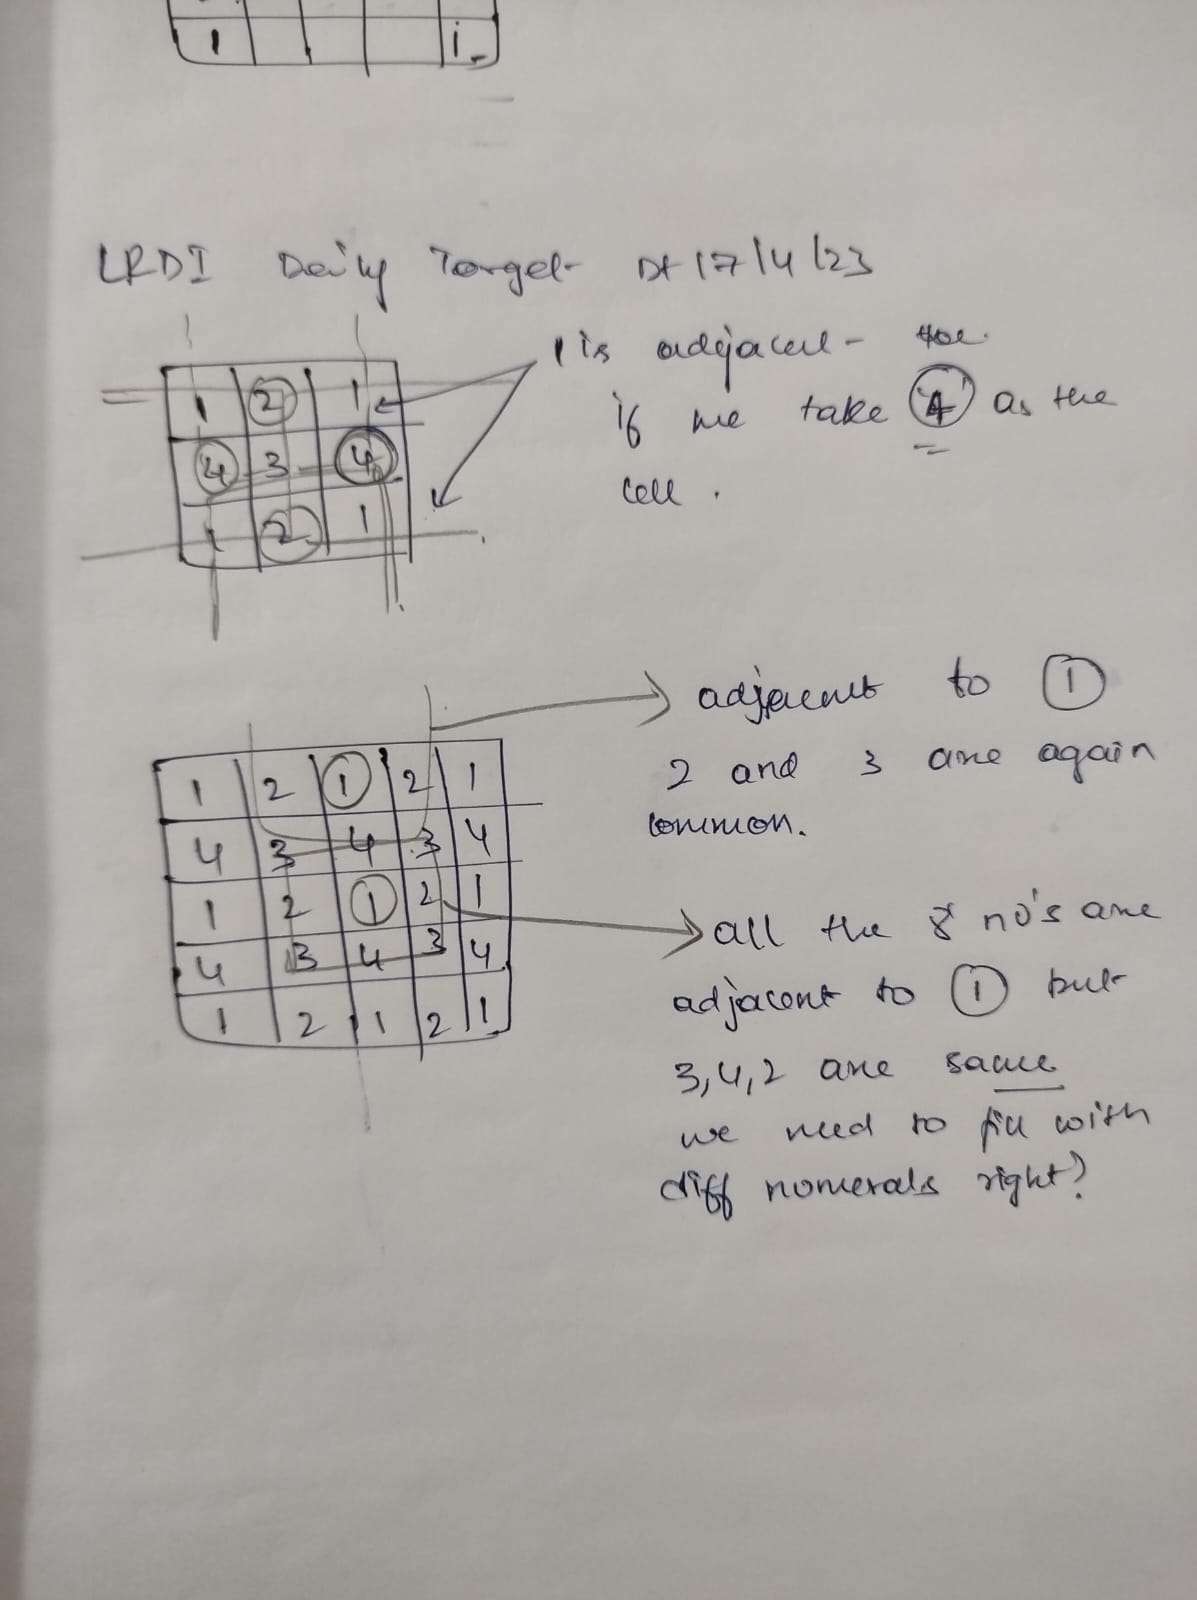 1 i
LRDI Daily Target Dt 17/4/23
1 is adjacent
if we take 4 as the
cell.
1 2 1
4 3 4
1 2 1
adjacent to 1
2 and 3 are again
common.
1 2 1 2 1
4 3 4 3 4
1 2 1 2 1
4 3 4 3 4
1 2 1 2 1
all the 8 no's are
adjacent to 1 but
3,4,2 are same
we need to fill with
diff numerals right?